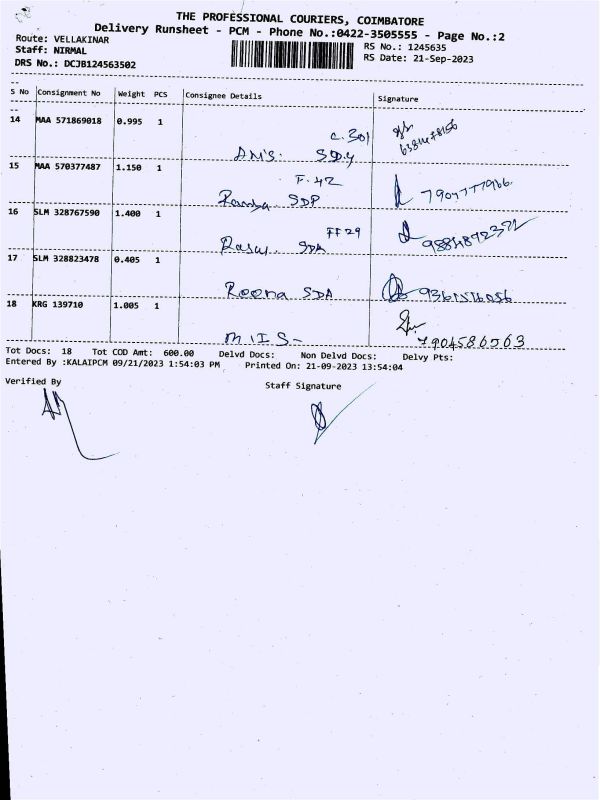 THE PROFESSIONAL COURIERS, COIMBATORE
Delivery Runsheet - PCM - Phone No.:0422-3505555 - Page No.:2
Route: VELLAKINAR
Staff: NIRMAL
DRS No.: DCJB124563502
RS No.: 1245635
RS Date: 21-Sep-2023
S No Consignment No Weight PCS Consignee Details Signature
14 MAA 571869018 0.995 1
C. 301
15 MAA 570377487 1.150 1
F. 42
SDP
16 SLM 328767590 1.400 1
FF 29
SDA
17 SLM 328823478 0.405 1
Reena SDA
18 KRG 139710 1.005 1
M.I.S-
7904586563
Tot Docs: 18 Tot COD Amt: 600.00 Delvd Docs: Non Delvd Docs: Delvy Pts:
Entered By :KALAIPCM 09/21/2023 1:54:03 PM Printed On: 21-09-2023 13:54:04
Verified By
Staff Signature